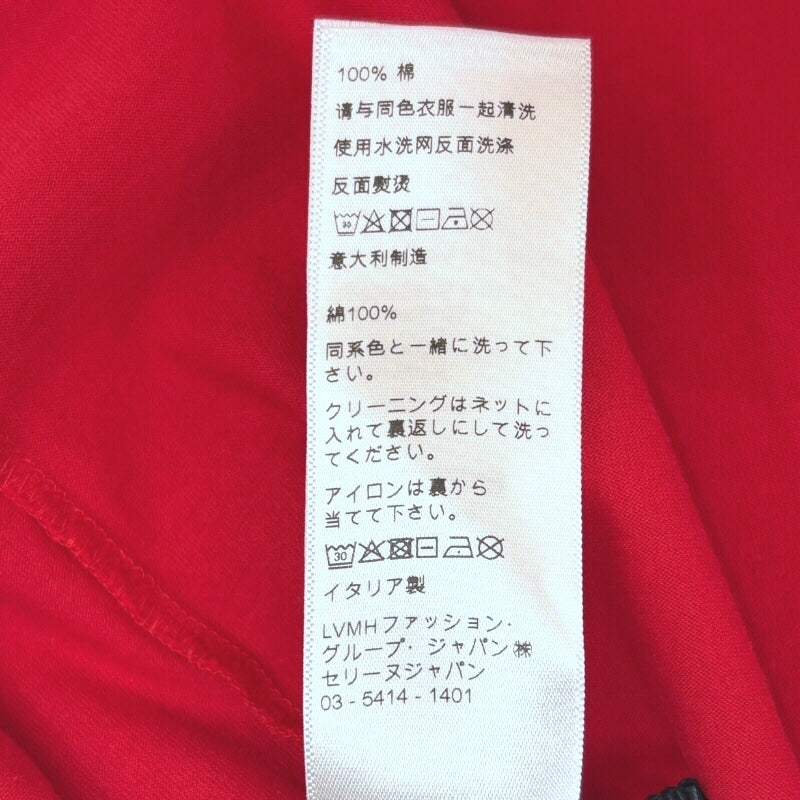 100% 棉
请与同色衣服一起清洗
使用水洗网反面洗涤
反面熨烫
30
意大利制造
綿100%
同系色と一緒に洗って下
さい。
クリーニングはネットに
入れて裏返しにして洗っ
てください。
アイロンは裏から
当てて下さい。
30
イタリア製
LVMHファッション・
グループ・ジャパン㈱
セリーヌジャパン
03 - 5414 - 1401